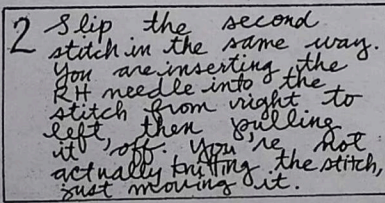 2 Slip the second
stitch in the same way.
You are inserting the
RH needle into the
stitch from right to
left, then pulling
it off. You're not
actually knitting the stitch,
just moving it.